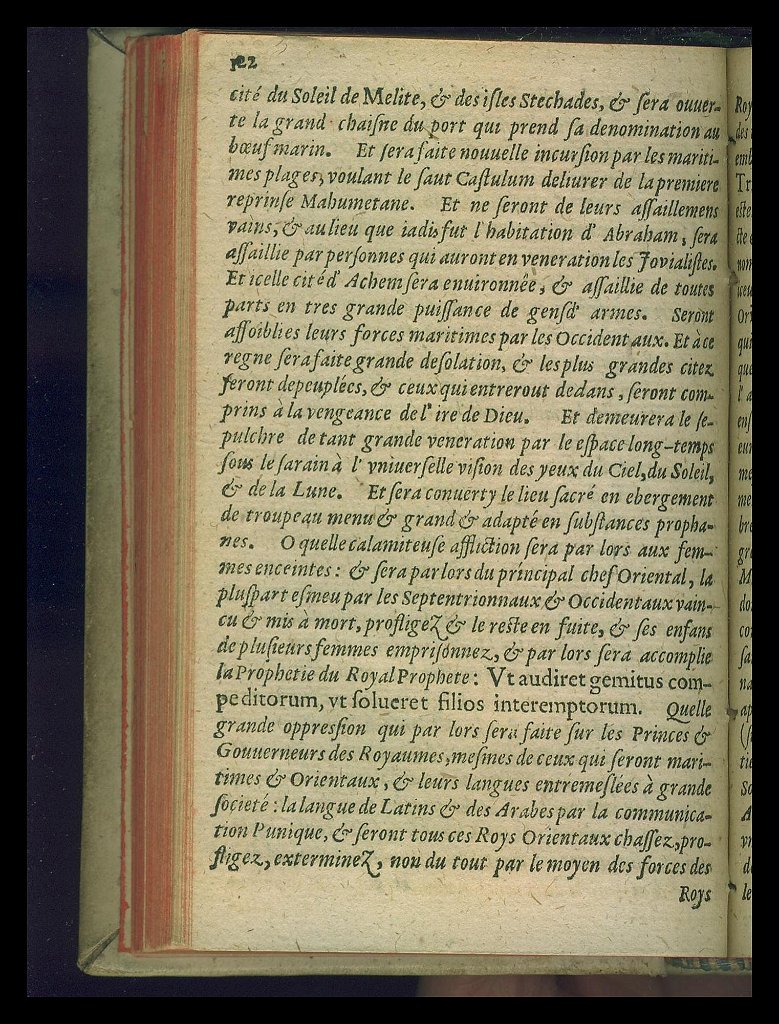 122
cité du Soleil de Melite, & des iſles Stechades, & ſera ouuer-
te la grand chaiſne du port qui prend ſa denomination au
bœuf marin. Et ſera faite nouuelle incurſion par les mariti-
mes plages, voulant le ſaut Caſtulum deliurer de la premiere
reprinſe Mahumetane. Et ne ſeront de leurs aſſaillemens
vains, & au lieu que iadis fut l'habitation d' Abraham, ſera
aſſaillie par perſonnes qui auront en veneration les Jovialiſtes.
Et icelle cité d' Achem ſera enuironnée, & aſſaillie de toutes
parts en tres grande puiſſance de genſd' armes. Seront
affoiblies leurs forces maritimes par les Occidentaux. Et à ce
regne ſera faite grande deſolation, & les plus grandes citez
ſeront depeuplées, & ceux qui entrerout dedans, ſeront com-
prins à la vengeance de l' ire de Dieu. Et demeurera le ſe-
pulchre de tant grande veneration par le eſpace long-temps
ſous le ſarain à l' vniuerſelle viſion des yeux du Ciel, du Soleil,
& de la Lune. Et ſera conuerty le lieu ſacré en ebergement
de troupeau menu & grand & adapté en ſubſtances propha-
nes. O quelle calamiteuſe affliction ſera par lors aux fem-
mes enceintes: & ſera par lors du principal chef Oriental, la
pluſpart eſmeu par les Septentrionnaux & Occidentaux vain-
cu & mis à mort, profligez & le reſte en fuite, & ſes enfans
de pluſieurs femmes empriſonnez, & par lors ſera accomplie
la Prophetie du Royal Prophete: Vt audiret gemitus com-
peditorum, vt ſolueret filios interemptorum. Quelle
grande oppreſſion qui par lors ſera faite ſur les Princes &
Gouuerneurs des Royaumes, meſmes de ceux qui ſeront mari-
times & Orientaux, & leurs langues entremeſlées à grande
ſocieté: la langue de Latins & des Arabes par la communica-
tion Punique, & ſeront tous ces Roys Orientaux chaſſez, pro-
fligez, exterminez, non du tout par le moyen des forces des
Roys